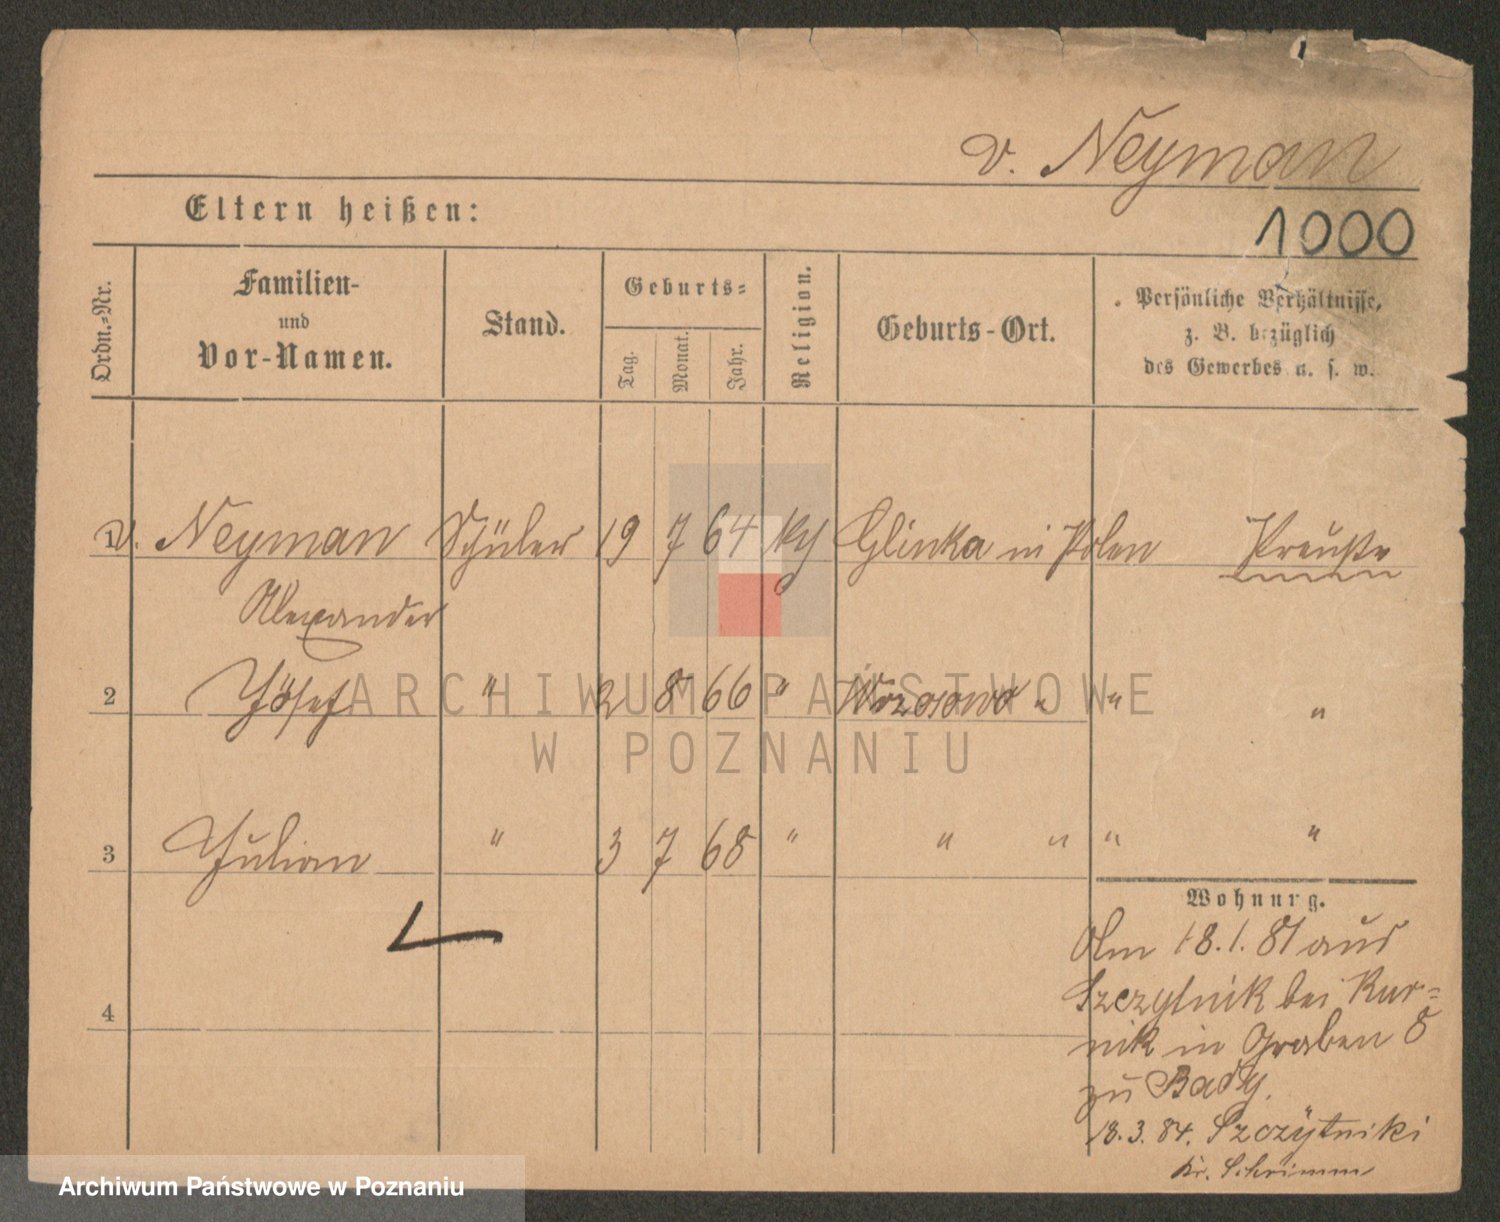 v. Neyman
Eltern heißen:
1000
Ordn.-Nr.
Familien-
und
Vor-Namen.
Stand.
Geburts-
Tag.
Monat.
Jahr.
Religion.
Geburts-Ort.
Persönliche Verhältnisse,
z. B. bezüglich
des Gewerbes u. s. w.
1 v. Neyman Schüler 19 7 64 Glinka in Polen Preuße
Alexander
2 Josef " 2 8 66 " " " "
3 Julian " 3 7 68 " " " " "
Wohnung.
18.1.81 aus
bei Kur-
nik in Graben 8
zu
4
18.3.84. Szczytniki
Kr. Schrimm
ARCHIWUM PAŃSTWOWE
W POZNANIU
Archiwum Państwowe w Poznaniu